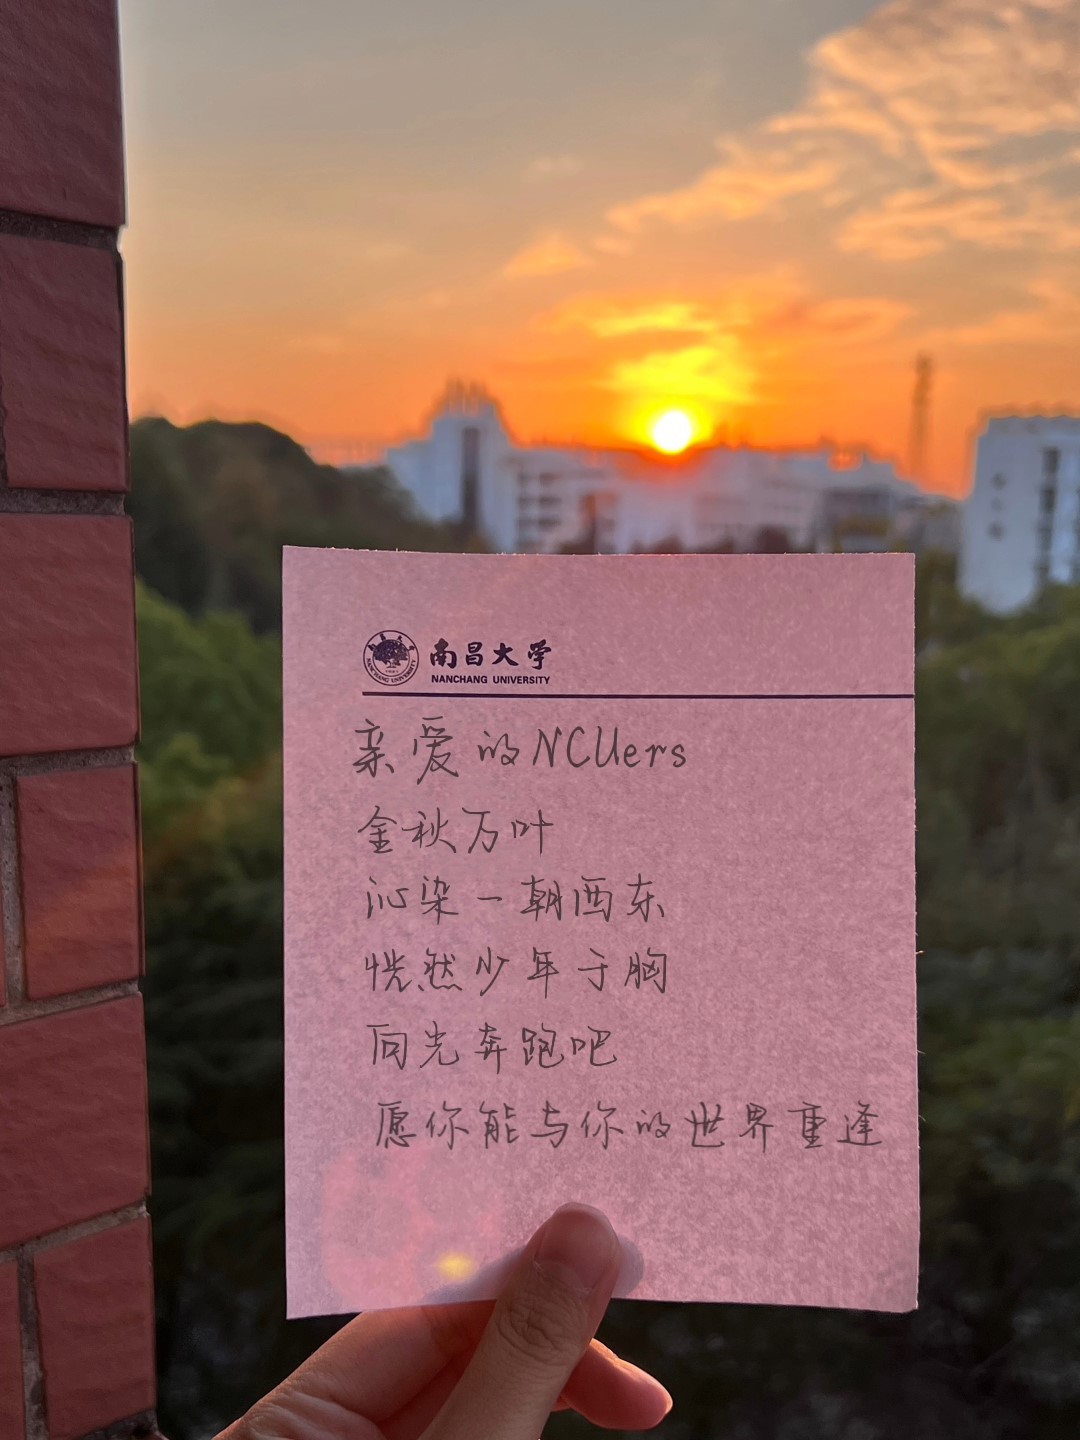 南昌大学
NANCHANG UNIVERSITY
亲爱的NCUers
金秋万叶
沁染一朝西东
恍然少年于胸
向光奔跑吧
愿你能与你的世界重逢